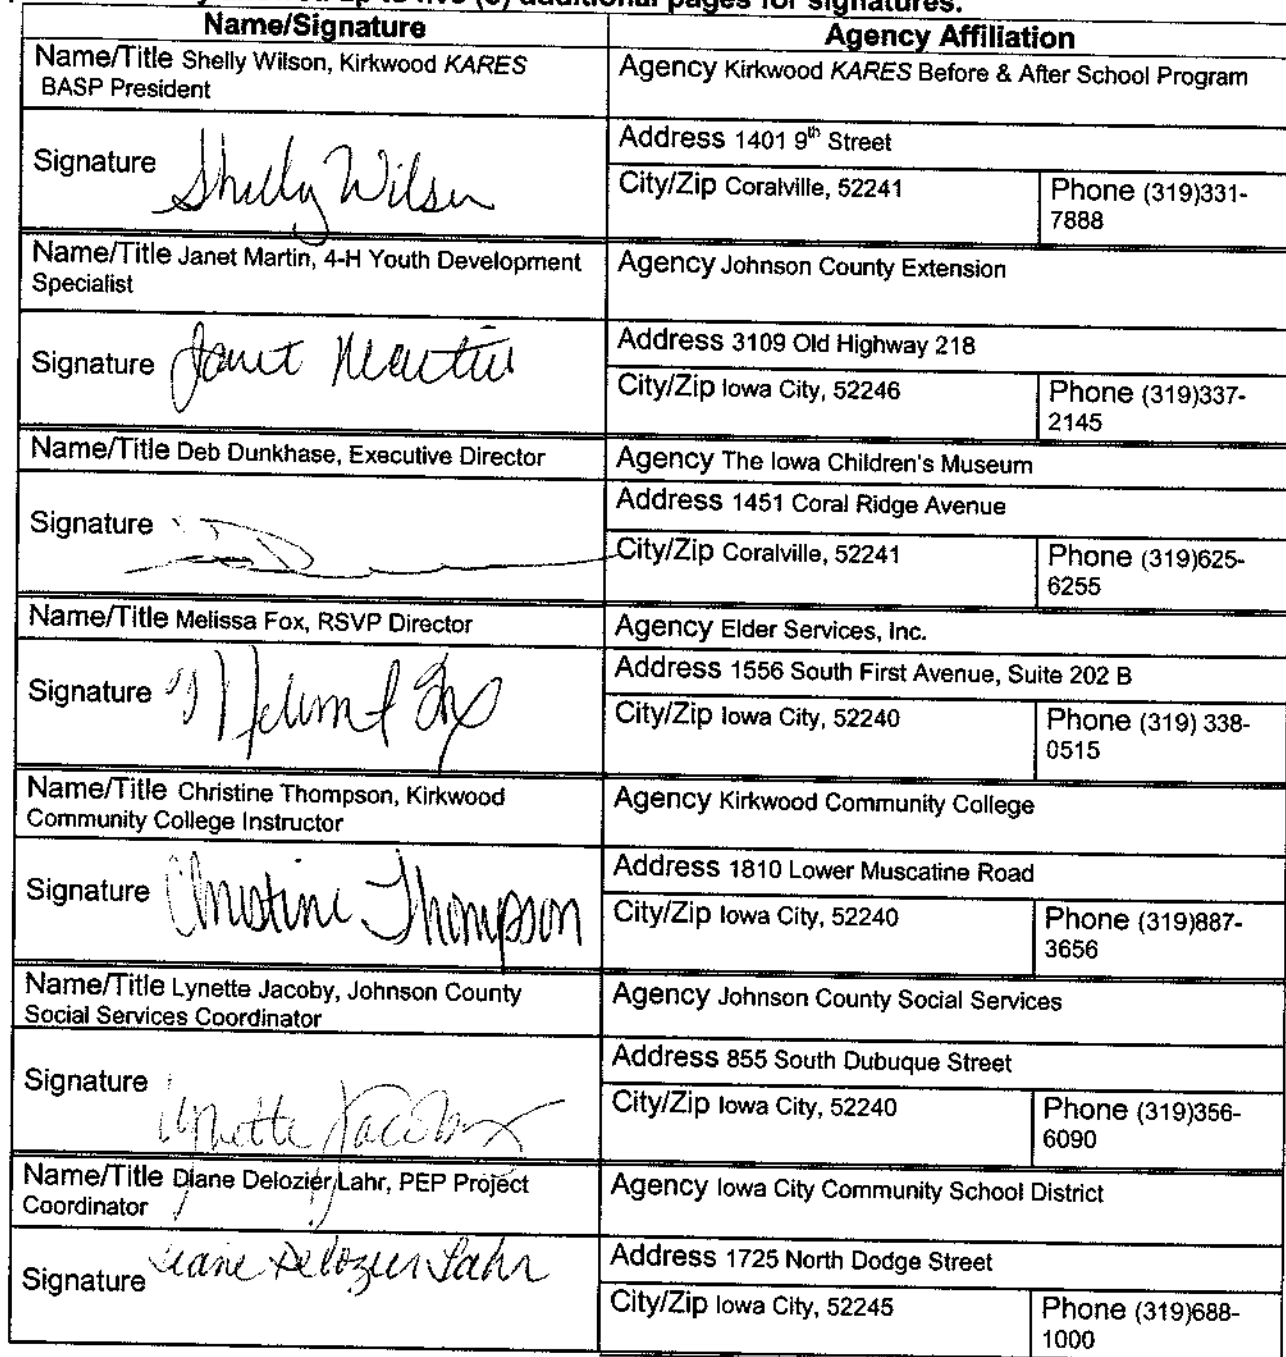 additional pages for signatures.
Name/Signature
Agency Affiliation
Name/Title Shelly Wilson, Kirkwood KARES
BASP President
Agency Kirkwood KARES Before & After School Program
Signature Shelly Wilson
Address 1401 9th Street
City/Zip Coralville, 52241
Phone (319)331-
7888
Name/Title Janet Martin, 4-H Youth Development
Specialist
Agency Johnson County Extension
Signature Janet Martin
Address 3109 Old Highway 218
City/Zip Iowa City, 52246
Phone (319)337-
2145
Name/Title Deb Dunkhase, Executive Director
Agency The Iowa Children's Museum
Signature
Address 1451 Coral Ridge Avenue
City/Zip Coralville, 52241
Phone (319)625-
6255
Name/Title Melissa Fox, RSVP Director
Agency Elder Services, Inc.
Signature Fox
Address 1556 South First Avenue, Suite 202 B
City/Zip Iowa City, 52240
Phone (319) 338-
0515
Name/Title Christine Thompson, Kirkwood
Community College Instructor
Agency Kirkwood Community College
Signature Christine Thompson
Address 1810 Lower Muscatine Road
City/Zip Iowa City, 52240
Phone (319)887-
3656
Name/Title Lynette Jacoby, Johnson County
Social Services Coordinator
Agency Johnson County Social Services
Signature Lynette Jacoby
Address 855 South Dubuque Street
City/Zip Iowa City, 52240
Phone (319)356-
6090
Name/Title Diane Delozier Lahr, PEP Project
Coordinator
Agency Iowa City Community School District
Signature Diane Delozier Lahr
Address 1725 North Dodge Street
City/Zip Iowa City, 52245
Phone (319)688-
1000